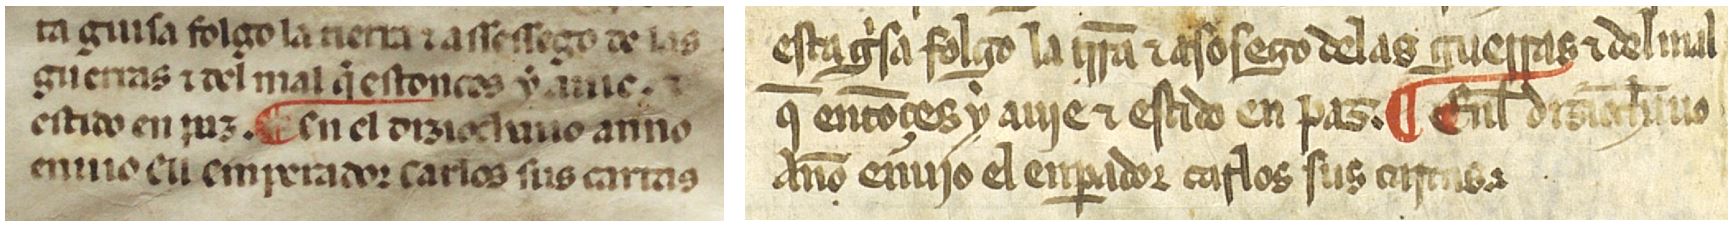 ta guisa folgo la tierra τ assessego de las
guerras τ del mal q̄ estonces ẏ auie. τ
estido en paz. ¶ En el diziochauo anno
enuio ell emperador Carlos sus cartas
esta gi̾sa folgo la tr̄ra τ asosego delas guerras τ del mal
q̄ entōçes ẏ auie τ estido en paz. ¶ Enl̄ diziochauo
Año enuio el enꝑador carlos sus cartas.